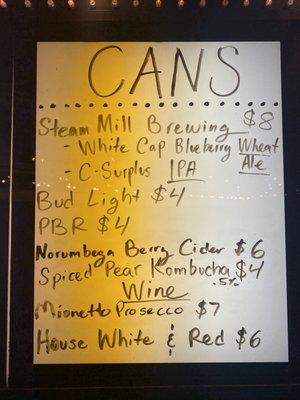 CANS
Steam Mill Brewing $8
- White Cap Blueberry Wheat Ale
- C-Surplus IPA
Bud Light $4
PBR $4
Norumbega Berry Cider $6
Spiced Pear Kombucha $4
.5%
Wine
Mionetto Prosecco $7
House White & Red $6